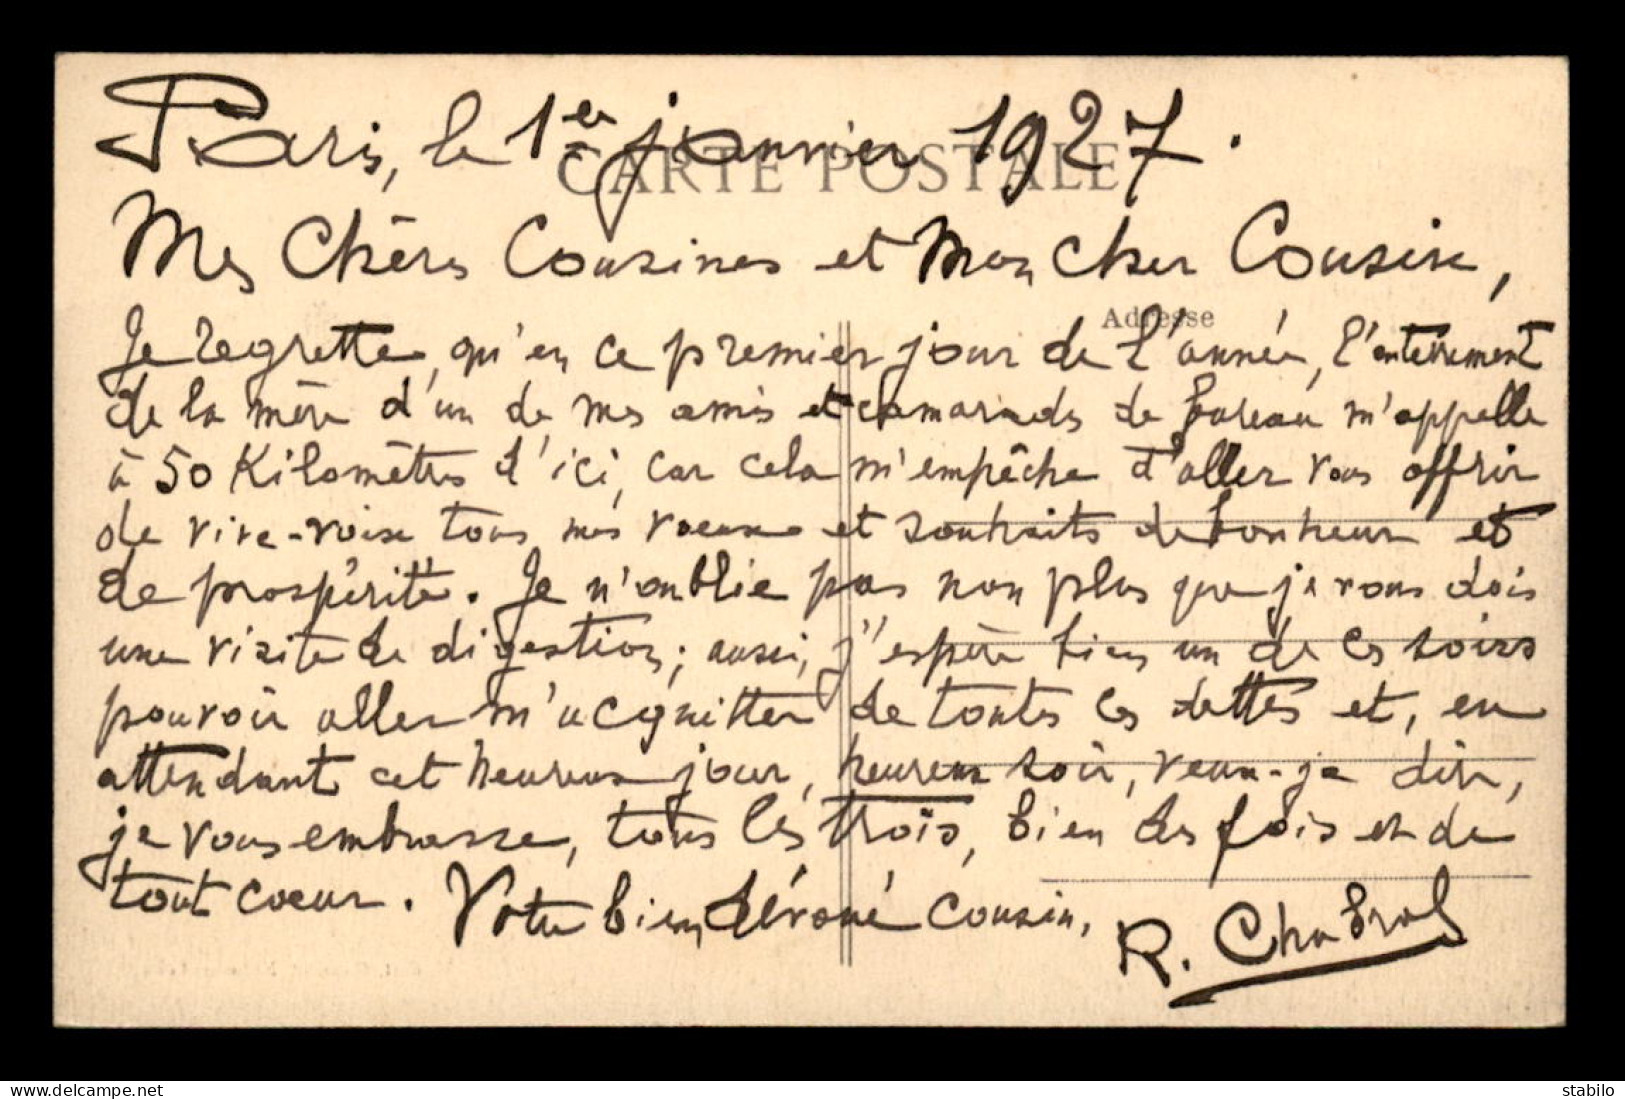 Paris, le 1er janvier 1927.
CARTE POSTALE
Mes Chères Cousines et Mon Cher Cousin,
Adresse
Je regrette, qu'en ce premier jour de l'année, l'enterrement
de la mère d'un de mes amis et camarades de bureau m'appelle
à 50 Kilomètres d'ici, car cela m'empêche d'aller vous offrir
de vive-voix tous mes voeux et souhaits de bonheur et
de prospérité. Je n'oublie pas non plus que je vous dois
une visite de digestion; aussi, j'espère bien un de ces soirs
pouvoir aller m'acquitter de toutes ces dettes et, en
attendant cet heureux jour, heureux soir, veux-je dire,
je vous embrasse, tous les trois, bien des fois et de
tout coeur. Votre bien dévoué cousin,
R. Chabrol
delcampe.net
stabilo